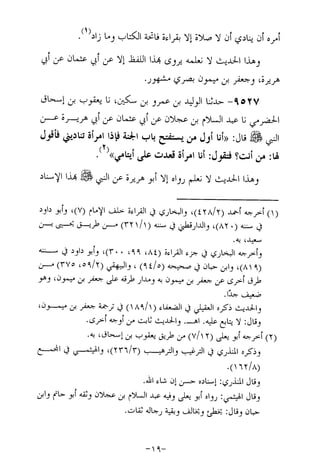 أمره أن ينادي أن لا صلاة إلا بقراءة فاتحة الكتاب وما زاد(١).
وهذا الحديث لا نعلمه يروى بهذا اللفظ إلا عن أبي عثمان عن أبي
هريرة، وجعفر بن ميمون بصري مشهور.
٩٥٢٧- حدثنا الوليد بن عمرو بن سكين، نا يعقوب بن إسحاق
الحضرمي نا عبد السلام بن عجلان عن أبي عثمان عن أبي هريـــرة عـــن
النبي ﷺ قال: «أنا أول من يستفتح باب الجنة فإذا امرأة تناديني فأقول
لها: من أنت؟ فتقول: أنا امرأة قعدت على أيتامي»(٢).
وهذا الحديث لا نعلم رواه إلا أبو هريرة عن النبي ﷺ بهذا الإسناد
(١) أخرجه أحمد (٤٢٨/٢)، والبخاري في القراءة خلف الإمام (٧)، وأبو داود
في سننه (٨٢٠)، والدارقطني في سننه (٣٢١/١) مـــن طريـــق يحيـــى بـــن
سعيد، به.
وأخرجه البخاري في جزء القراءة (٨٤، ٩٩، ٣٠٠)، وأبو داود في ســـننه
(٨١٩)، وابن حبان في صحيحه (٩٤/٥)، والبيهقي (٥٩/٢، ٣٧٥) مـــن
طرق أخرى عن جعفر بن ميمون به ومدار طرقه على جعفر بن ميمون، وهو
ضعيف جدًا.
والحديث ذكره العقيلي في الضعفاء (١٨٩/١) في ترجمة جعفر بن ميمـــون،
وقال: لا يتابع عليه. اهـ. والحديث ثابت من أوجه أخرى.
(٢) أخرجه أبو يعلى (٧/١٢) من طريق يعقوب بن إسحاق، به.
وذكره المنذري في الترغيب والترهيـــب (٢٣٦/٣)، والهيثمـــي في المجمـــع
(١٦٢/٨).
وقال المنذري: إسناده حسن إن شاء الله.
وقال الهيثمي: رواه أبو يعلى وفيه عبد السلام بن عجلان وثقه أبو حاتم وابن
حبان وقال: يخطئ ويخالف وبقية رجاله ثقات.
-١٩-